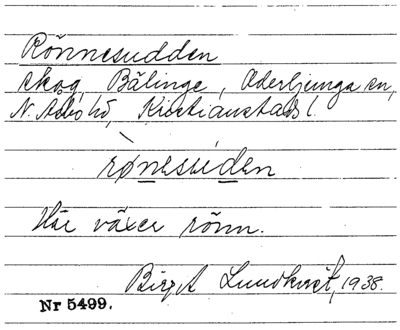 Rönnesudden
skog, Bälinge, Oderljunga sn,
N. Asbo hd, Kristianstads l.
rønesuden
Här växer rönn.
Birgit Lundkvist, 1938.
Nr 5499.